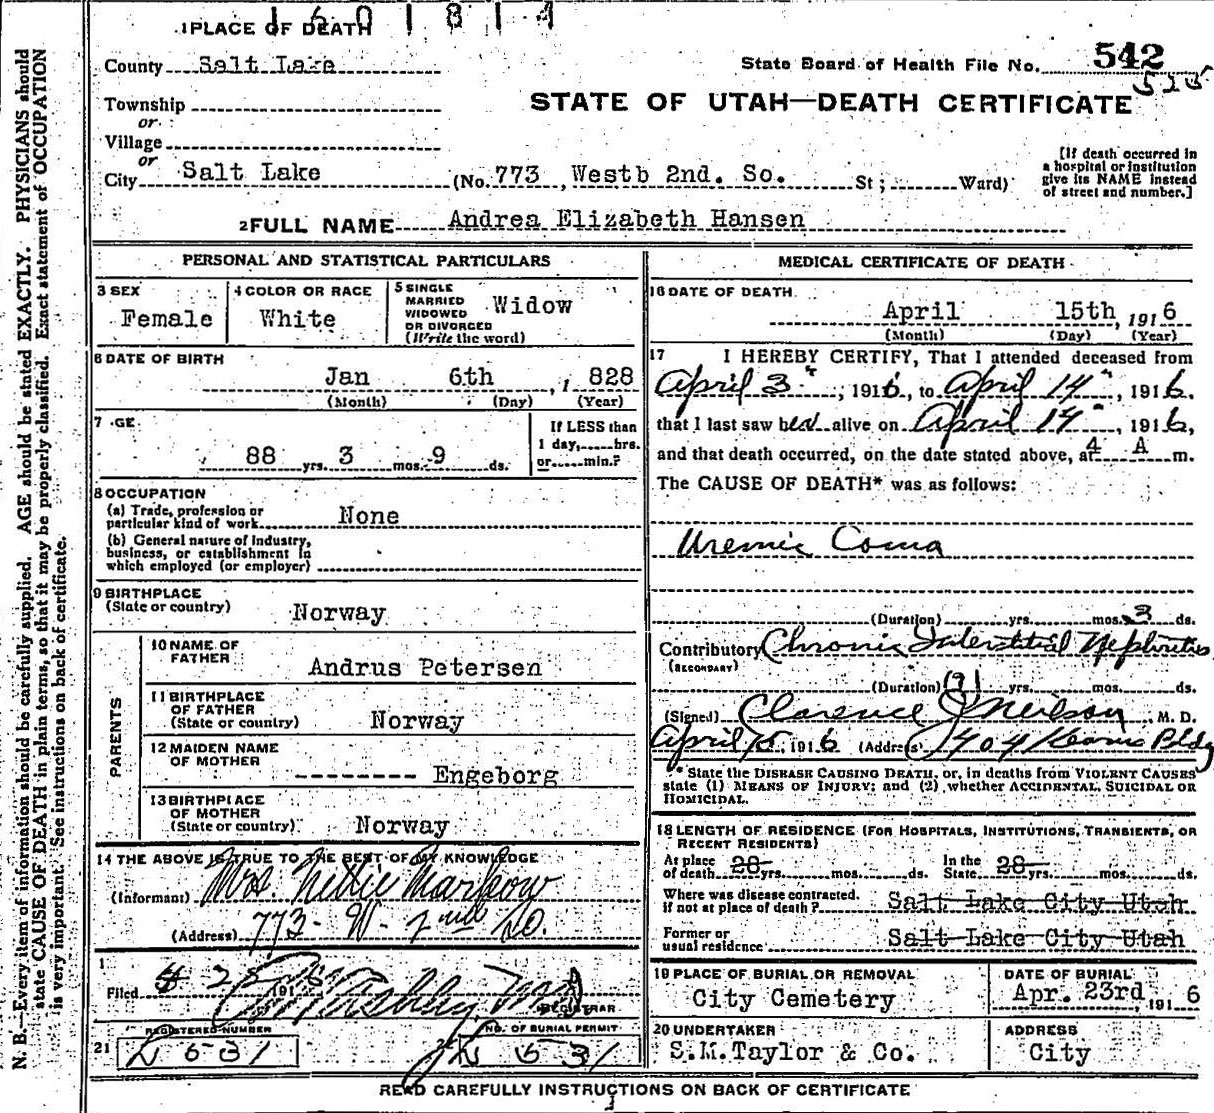 1601814
1 PLACE OF DEATH
County Salt Lake
State Board of Health File No. 542
525
Township
or
STATE OF UTAH—DEATH CERTIFICATE
Village
or
City Salt Lake (No. 773, Westb 2nd. So. St; Ward)
[If death occurred in
a hospital or institution
give its NAME instead
of street and number.]
2 FULL NAME Andrea Elizabeth Hansen
PERSONAL AND STATISTICAL PARTICULARS
3 SEX
Female
4 COLOR OR RACE
White
5 SINGLE
MARRIED
WIDOWED
OR DIVORCED
(Write the word)
Widow
6 DATE OF BIRTH
Jan 6th, 1 828
(Month) (Day) (Year)
7 GE
88 yrs. 3 mos. 9 ds.
If LESS than
1 day, hrs.
or min.?
8 OCCUPATION
(a) Trade, profession or
particular kind of work None
(b) General nature of Industry,
business, or establishment in
which employed (or employer)
9 BIRTHPLACE
(State or country) Norway
PARENTS
10 NAME OF
FATHER Andrus Petersen
11 BIRTHPLACE
OF FATHER
(State or country) Norway
12 MAIDEN NAME
OF MOTHER
-------- Engeborg
13 BIRTHPLACE
OF MOTHER
(State or country) Norway
14 THE ABOVE IS TRUE TO THE BEST OF MY KNOWLEDGE
(Informant) Mrs. Nettie
(Address) 773- W- 2nd So.
Filed 191
REGISTRAR
REGISTERED NUMBER
NO. OF BURIAL PERMIT
21
MEDICAL CERTIFICATE OF DEATH
16 DATE OF DEATH
April 15th, 1916
(Month) (Day) (Year)
17 I HEREBY CERTIFY, That I attended deceased from
April 3", 1916, to April 14", 1916.
that I last saw her alive on April 14", 1916,
and that death occurred, on the date stated above, at 4 A m.
The CAUSE OF DEATH* was as follows:
Uremic Coma
(Duration) yrs. mos. 3 ds.
Contributory Chronic Interstitial Nephritis
(SECONDARY)
(Duration) (?) yrs. mos. ds.
(Signed) Clarence J Neilson, M. D.
April 15, 1916 (Address) 1404 Kearns Bldg
* State the DISEASE CAUSING DEATH, or, in deaths from VIOLENT CAUSES
state (1) MEANS OF INJURY; and (2) whether ACCIDENTAL, SUICIDAL OR
HOMICIDAL.
18 LENGTH OF RESIDENCE (FOR HOSPITALS, INSTITUTIONS, TRANSIENTS, OR
RECENT RESIDENTS)
At place
of death 28 yrs. mos. ds.
In the
State 28 yrs. mos. ds.
Where was disease contracted.
if not at place of death? Salt Lake City Utah
Former or
usual residence Salt Lake City Utah
19 PLACE OF BURIAL OR REMOVAL
City Cemetery
DATE OF BURIAL
Apr. 23rd, 191 6
20 UNDERTAKER
S.M.Taylor & Co.
ADDRESS
City
READ CAREFULLY INSTRUCTIONS ON BACK OF CERTIFICATE
N. B.—Every item of information should be carefully supplied. AGE should be stated EXACTLY. PHYSICIANS should
state CAUSE OF DEATH in plain terms, so that it may be properly classified. Exact statement of OCCUPATION
is very important. See instructions on back of certificate.